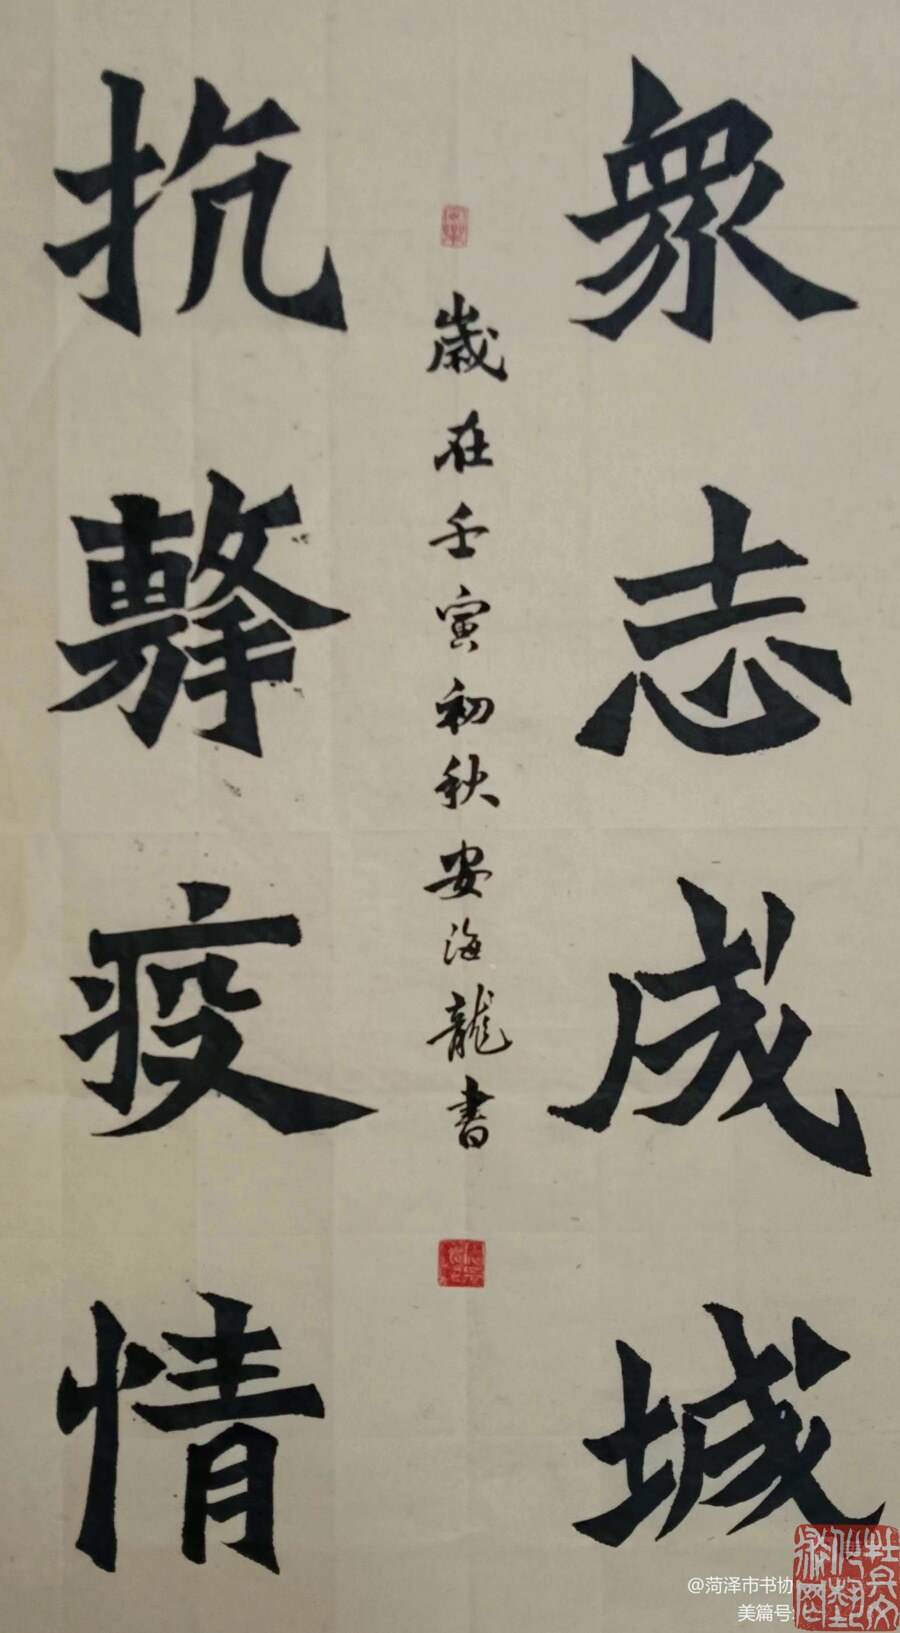 眾志成城
抗擊疫情
歲在壬寅初秋安海龍書
@菏泽市书协
美篇号: